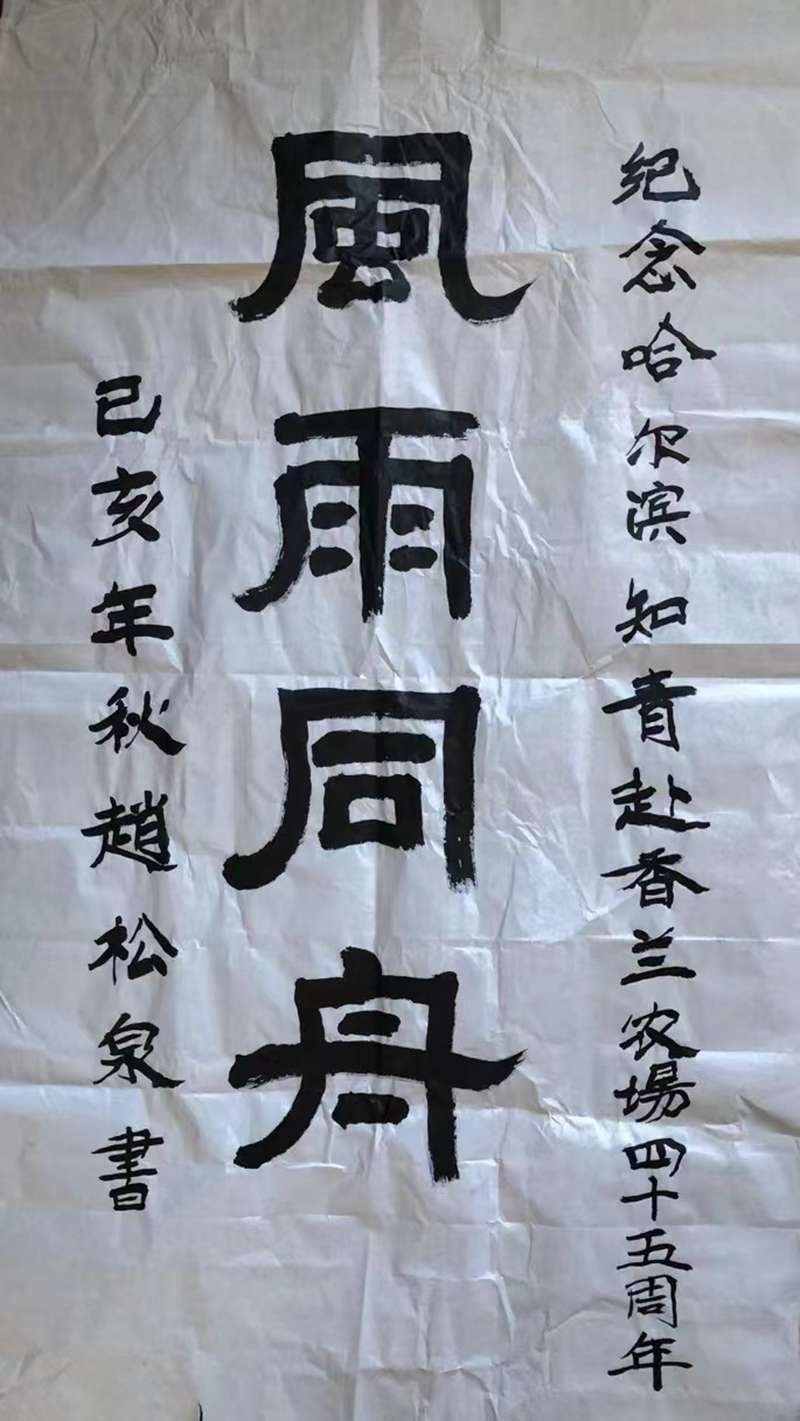 纪念哈尔滨知青赴香兰农場四十五周年
風雨同舟
己亥年秋趙松泉書